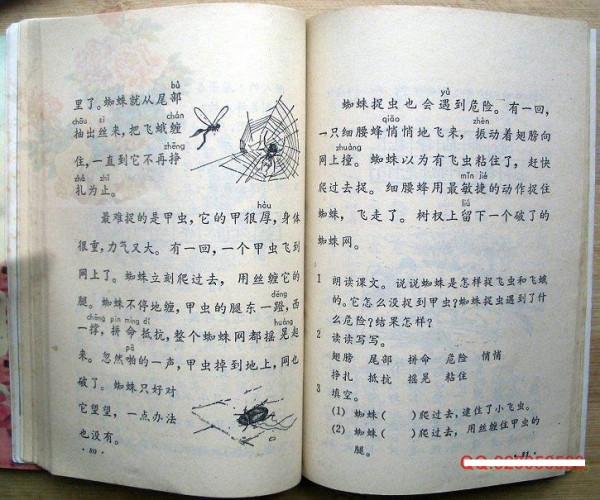 bù
里了。蜘蛛就从尾部
chōu sī chán
抽出丝来,把飞蛾缠
zhēng
住,一直到它不再挣
zhá zhǐ
扎为止。
hòu
最难捉的是甲虫,它的甲很厚,身体
很重,力气又大。有一回,一个甲虫飞到
网上了。蜘蛛立刻爬过去,用丝缠它的
dēng
腿。蜘蛛不停地缠,甲虫的腿东一蹬,西
chēng pīn mìng dǐ huàng
一撑,拼命抵抗,整个蜘蛛网都摇晃起
pā
来。忽然啪的一声,甲虫掉到地上,网也
破了。蜘蛛只好对
它望望,一点办法
也没有。
·80·
yù
蜘蛛捉虫也会遇到危险。有一回,
qiāo zhèn
一只细腰蜂悄悄地飞来,振动着翅膀向
zhuàng
网上撞。蜘蛛以为有飞虫粘住了,赶快
mǐn jié
爬过去捉。细腰蜂用最敏捷的动作捉住
liú
蜘蛛,飞走了。树杈上留下一个破了的
蜘蛛网。
1 朗读课文。说说蜘蛛是怎样捉飞虫和飞蛾
的。它怎么没捉到甲虫?蜘蛛捉虫遇到了什
么危险?结果怎样?
2 读读写写。
翅膀 尾部 拼命 危险 悄悄
挣扎 抵抗 摇晃 粘住
3 填空。
(1) 蜘蛛( )爬过去,逮住了小飞虫。
(2) 蜘蛛( )爬过去,用丝缠住甲虫的
腿。